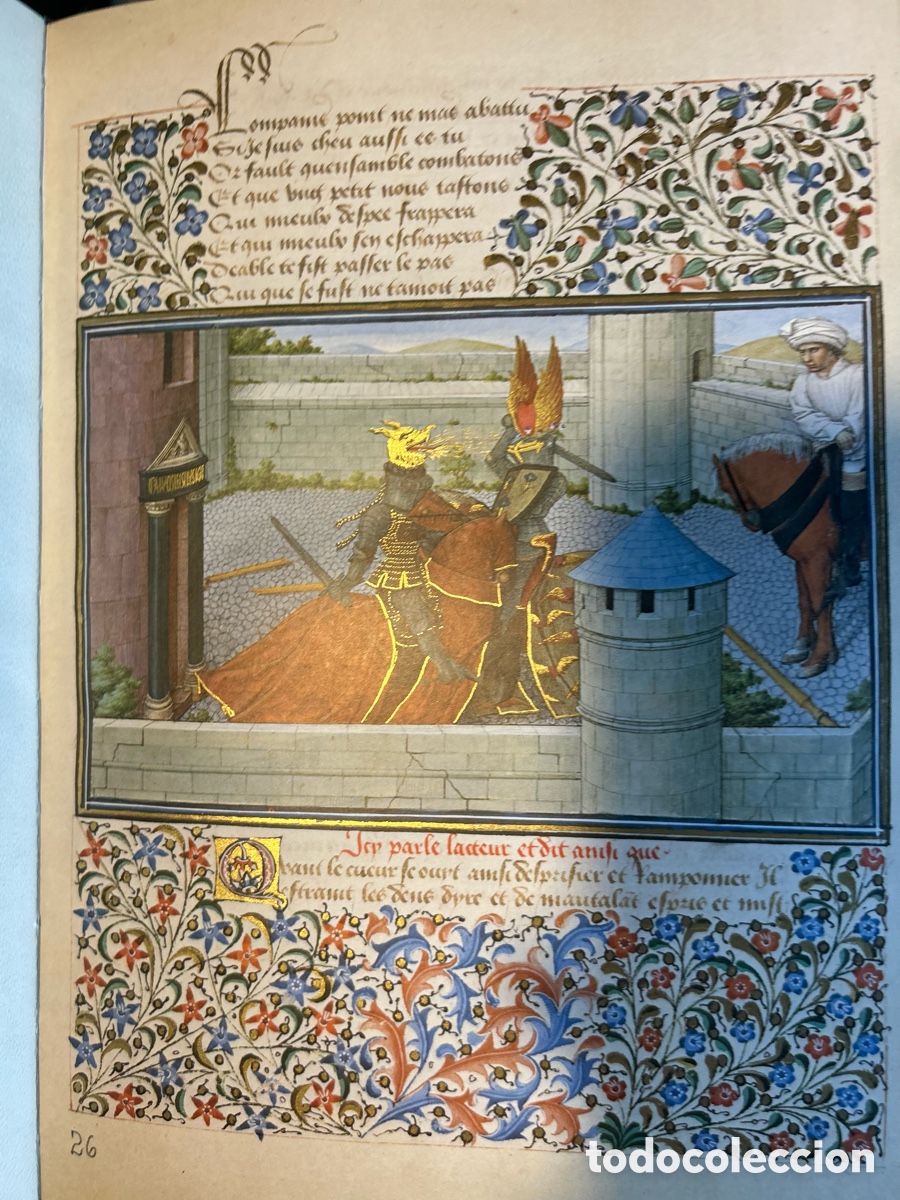 Compains point ne mas abattu
Si Je suis cheu aussi es tu
Or fault quensamble combatons
Et que ung petit nous tastons
Qui mieulx despee frappera
Et qui mieulx sen eschappera
Deable te fist passer le pas
Qui que se fust ne tamoit pas
Icy parle lacteur et dit ainsi que
Quant le cueur se ourt ainsi desprisier et ramponner Il
estraint les dens dyre et de mautalat espris et mist
26
todocoleccion